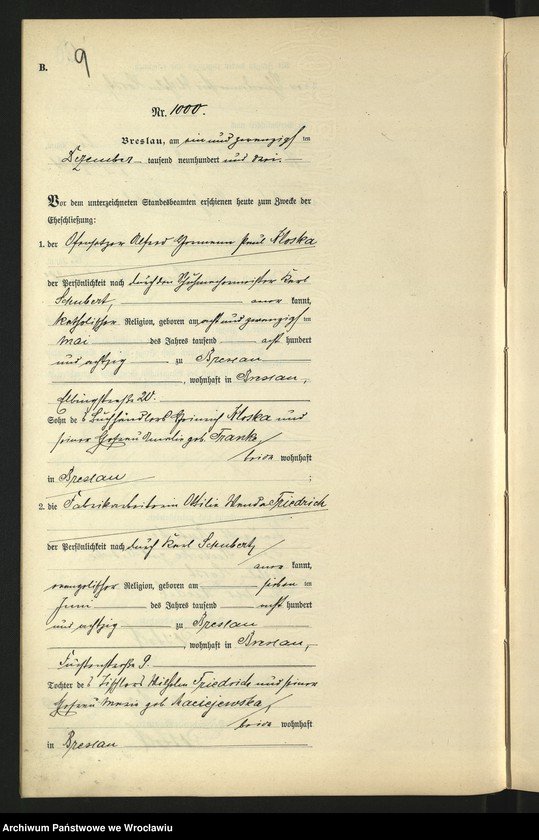 B. 9
Nr. 1000.
Breslau, am ein und zwanzigsten
Dezember tausend neunhundert und drei.
Vor dem unterzeichneten Standesbeamten erschienen heute zum Zwecke der
Eheschließung:
1. der Ofensetzer Alfred Hermann Paul Kloska
der Persönlichkeit nach durch den Schuhmachermeister Karl
Schubert, aner kannt,
katholischer Religion, geboren am acht und zwanzigsten
Mai des Jahres tausend acht hundert
und achtzig zu Breslau
, wohnhaft in Breslau,
Elbingstraße 20.
Sohn des Buchhändlers Heinrich Kloska und
seiner Ehefrau Amalie geb. Franke,
beide wohnhaft
in Breslau ;
2. die Fabrikarbeiterin Ottilie Wanda Friedrich
der Persönlichkeit nach durch Karl Schubert,
aner kannt,
evangelischer Religion, geboren am sieben ten
Juni des Jahres tausend acht hundert
und achtzig zu Breslau
, wohnhaft in Breslau,
Fürstenstraße 9.
Tochter des Tischlers Wilhelm Friedrich und seiner
Ehefrau Marie geb. Maciejewska,
beide wohnhaft
in Breslau
Archiwum Państwowe we Wrocławiu